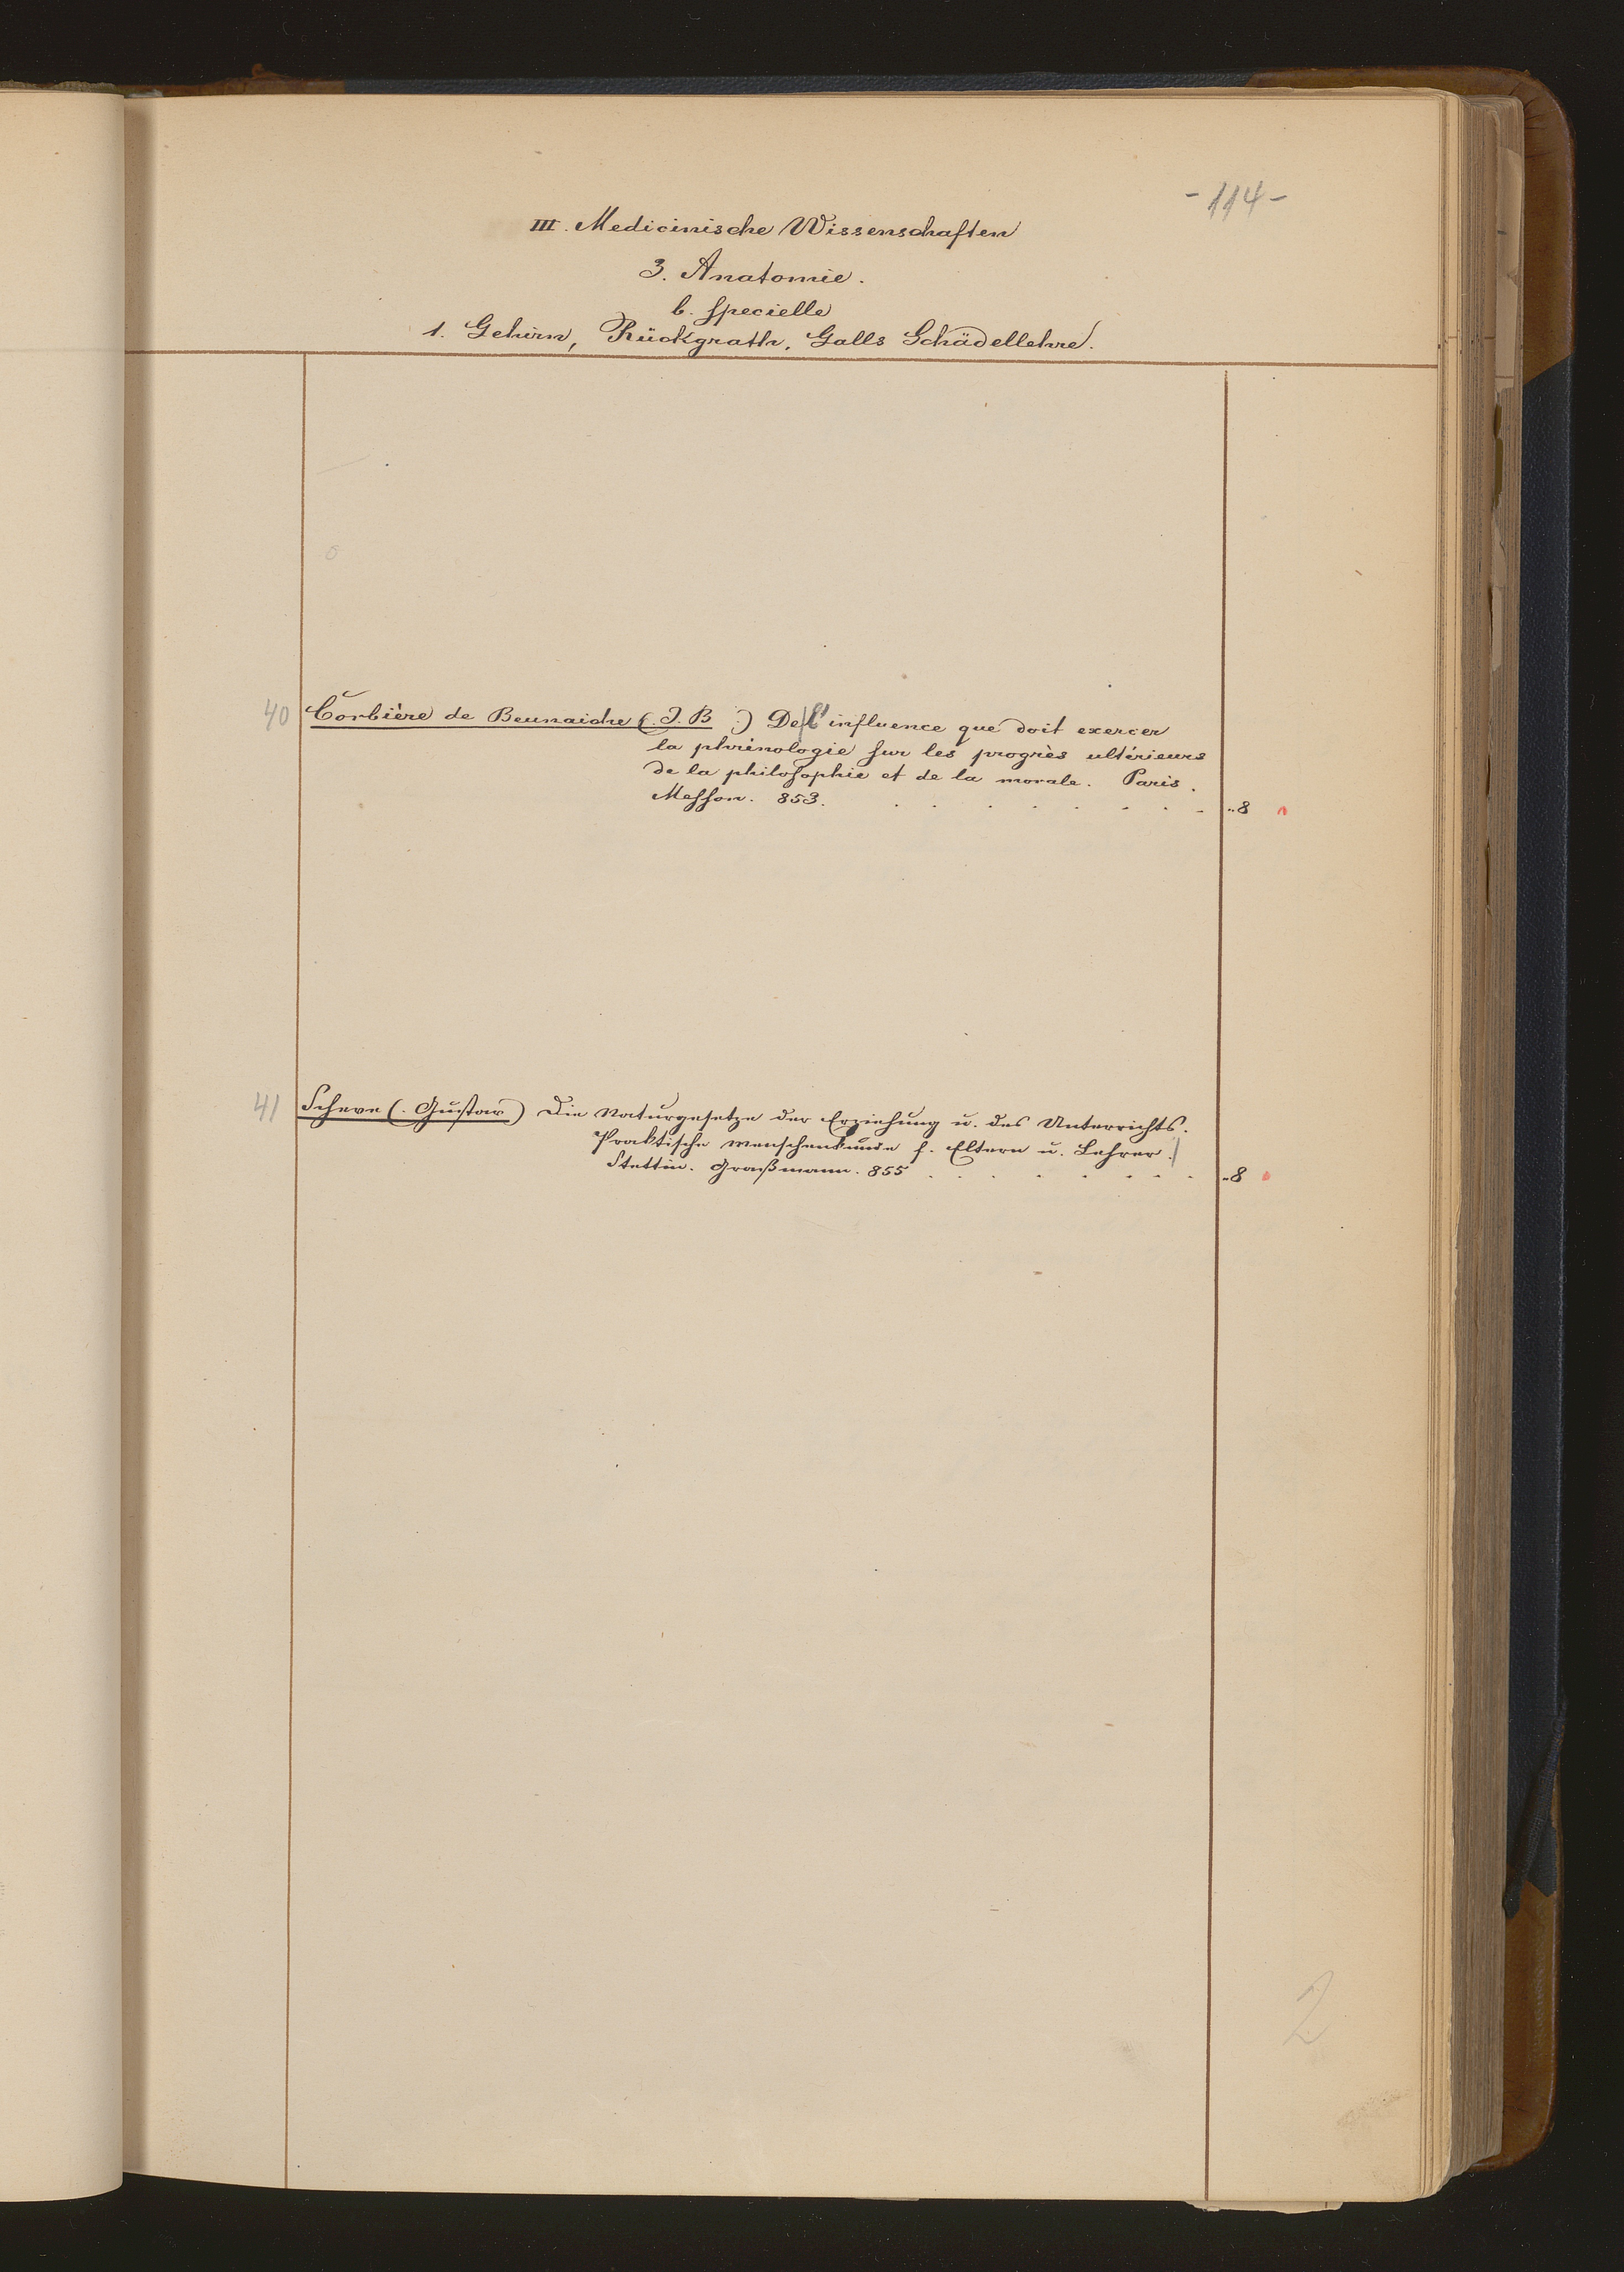 -114-
III. Medicinische Wissenschaften
3. Anatomie.
b. specielle
1. Gehirn, Rückgrath, Galls Schädellehre.
40 Corbière de Beunaiche (. J. B .) De l' influence que doit exercer
la phrénologie sur les progrès ultérieurs
de la philosophie et de la morale. Paris.
Messon. 853. . . . . . . . . . ..8
41 Scheve (. Gustav) Die Naturgesetze der Erziehung u. des Unterrichts.
Praktische Menschenkunde f. Eltern u. Lehrer.
Stettin. Graßmann. 855 . . . . . . . . ..8
2